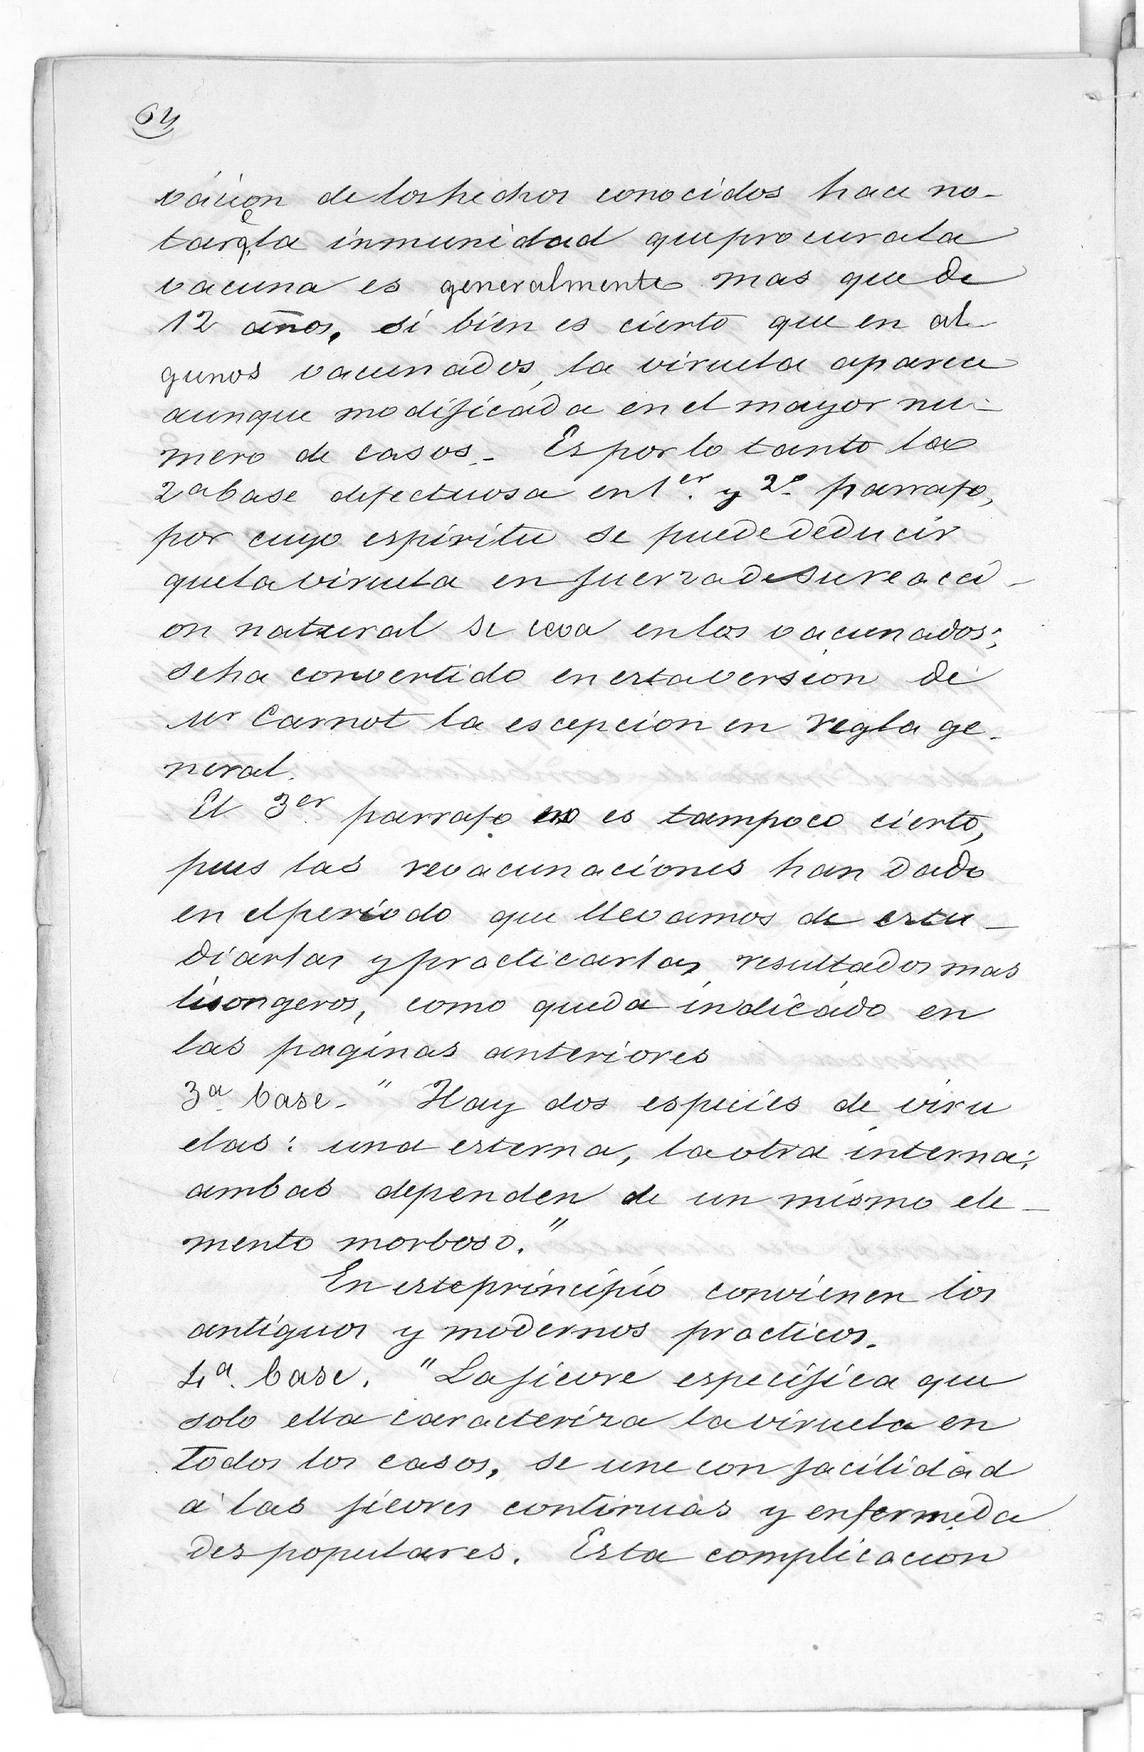 64
vacion de los hechos conocidos hace no-
tar q.e la inmunidad que procura la
vacuna es generalmente mas que de
12 años, si bien es cierto que en al-
gunos vacunados, la viruela aparece
aunque modificada en el mayor nu-
mero de casos.- Es por lo tanto la
2a base defectuosa en 1er. y 2o. parrafo,
por cuyo espiritu se puede deducir
que la viruela en fuerza de su reacci-
on natural se ceva en los vacunados;
se ha convertido en esta version de
Mr Carnot la escepcion en regla ge-
neral.
El 3er. parrafo no es tampoco cierto,
pues las revacunaciones han dado
en el periodo que llevamos de estu-
diarlas y practicarlas, resultados mas
lisongeros, como queda indicado en
las paginas anteriores
3a. base.- "Hay dos especies de viru
elas: una esterna, la otra interna;
ambas dependen de un mismo ele-
mento morboso."
En este principio convienen los
antiguos y modernos practicos.
4a. base. "La fievre especifica que
solo ella caracteriza la viruela en
todos los casos, se une con facilidad
a las fievres continuas y enfermeda
des populares. Esta complicacion